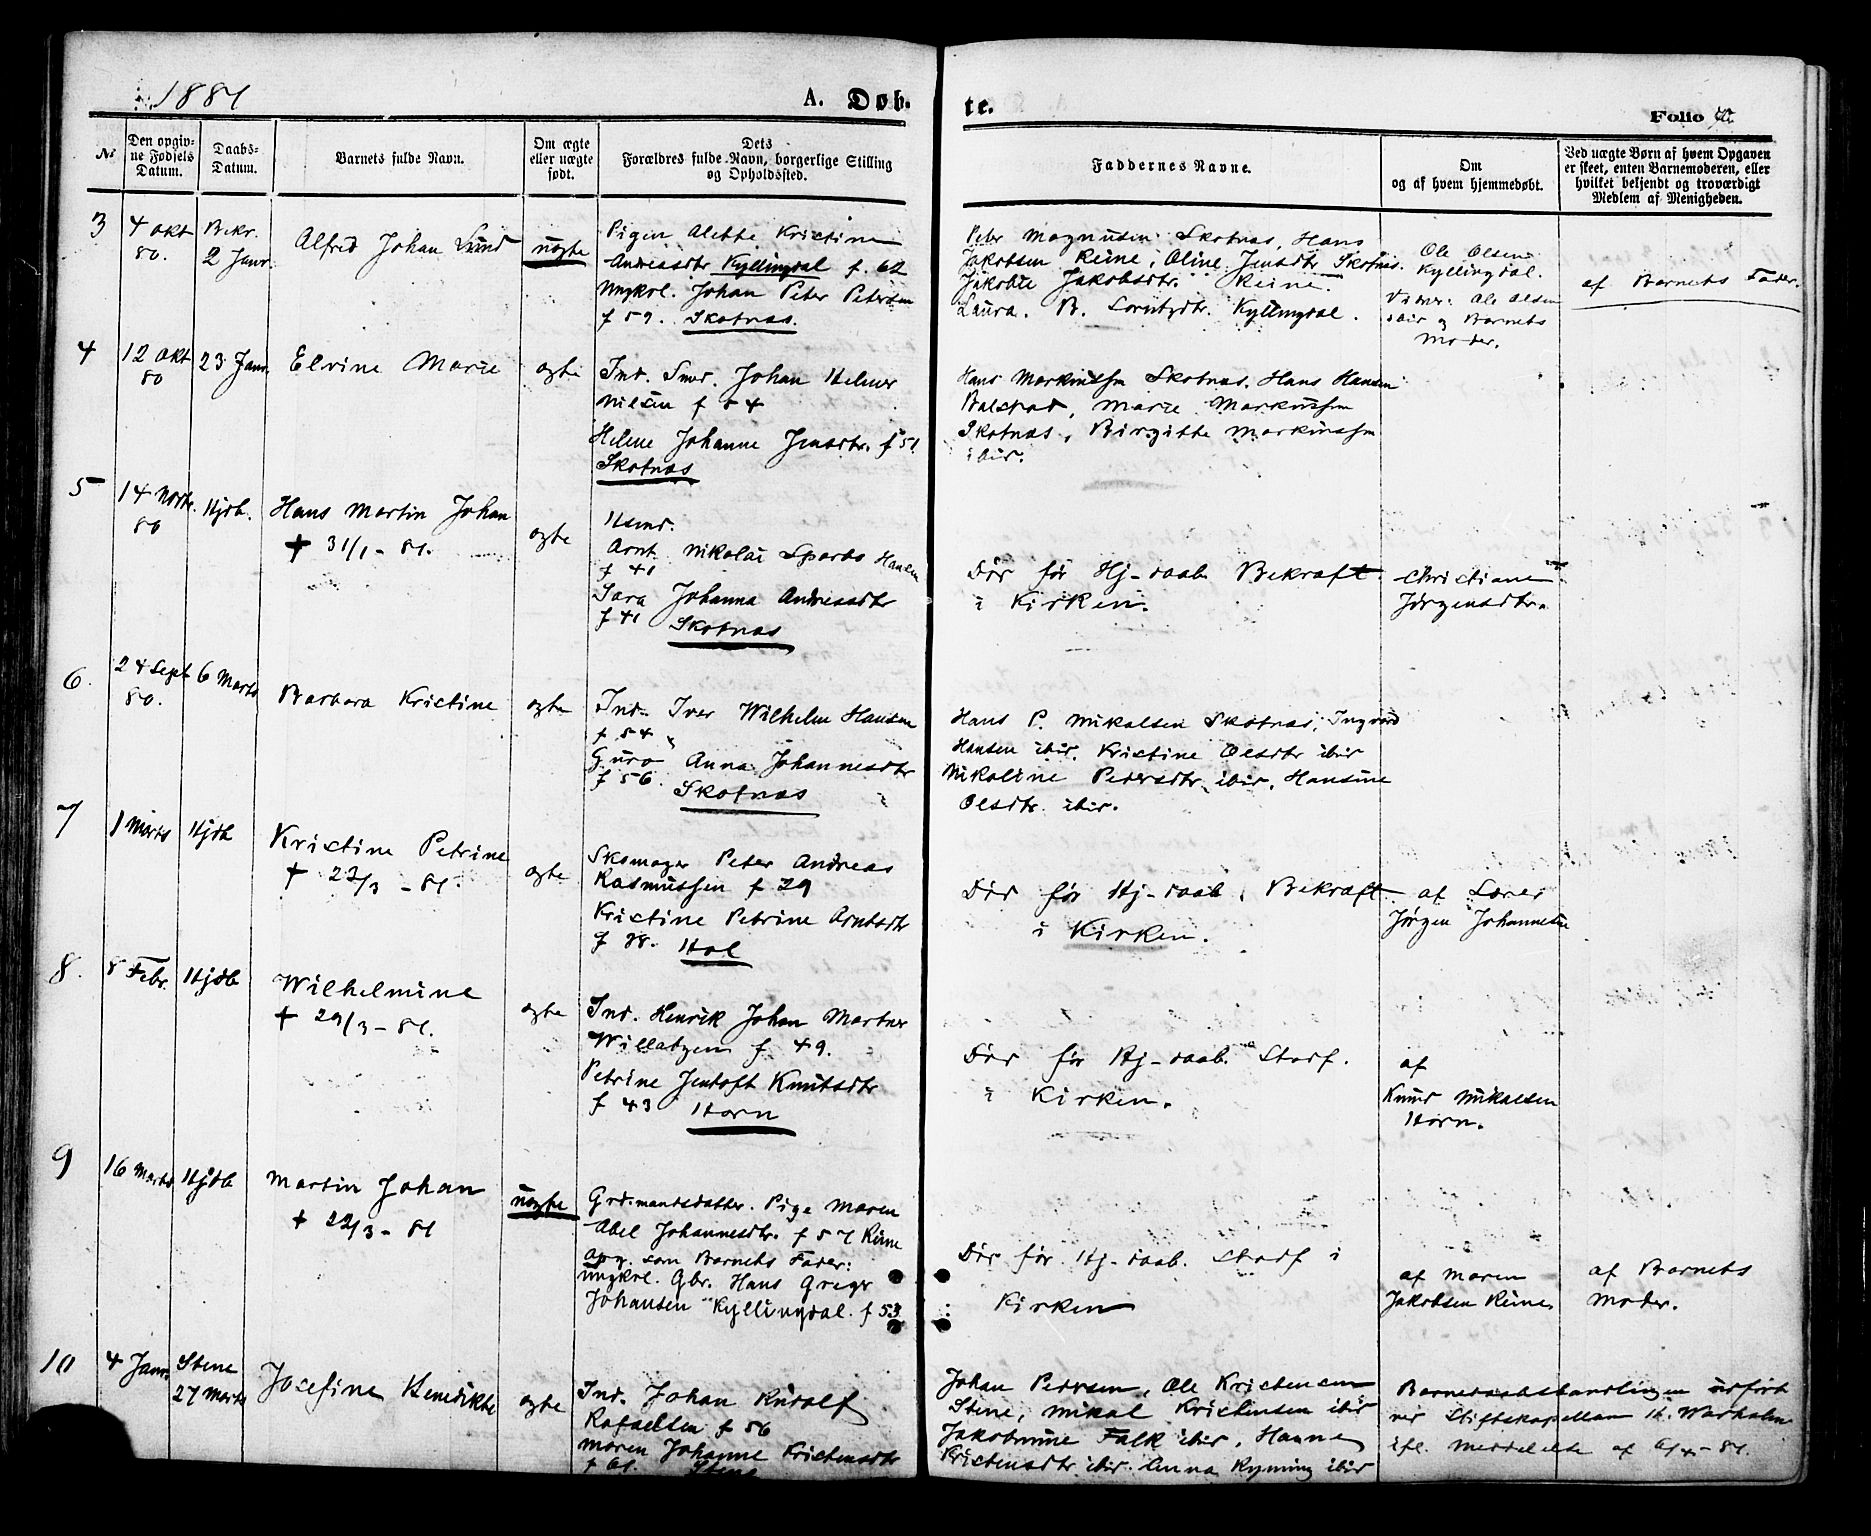 1881
A. Døb-
te.
Folio
No
Den opgiv-
ne Fødsels
Datum.
Daabs-
Datum.
Barnets fulde Navn.
Om ægte
eller uægte
født.
Dets
Forældres fulde Navn, borgerlige Stilling
og Opholdssted.
Faddernes Navne.
Om
og af hvem hjemmedøbt.
Ved uægte Børn af hvem Opgaven
er skeet, enten Barnemoderen, eller
hvilket bekjendt og troværdigt
Medlem af Menigheden.
3
4 Okt
80.
Bekr.
2 Janr
Alfred Johan Lund
uægte
Pigen Alette Kristine
Andreasdtr Kyllingdal f. 62
Ungkrl. Johan Peter Petersen
f 59. Skotnæs.
Peter Magnusen Skotnæs, Hans
Jakobsen Reine, Oline Jensdtr Skotnæs.
Jakobie Jakobsdtr. Reine.
Laura B. Lorntzdtr. Kyllingdal.
Ole Olsen
Kyllingdal.
Ole Olsen
ibid og Barnets
Moder.
af Barnets Fader.
4
12 Okt
80
23 Janr.
Elvine Marie
ægte
Ind. Smd. Johan Helmer
Nilsen f 54
Helene Johanne Jensdtr. f 51
Skotnæs
Hans Markussen Skotnæs. Hans Hansen
Balstad, Marie Markussen
Skotnæs, Birgitte Markussen
ibid.
5
14 Novbr.
80
Hjdb.
Hans Martin Johan
+ 31/1 - 81.
ægte
Hsmd.
Arnt Nikolai Sparbo Hansen
f 41
Sara Johanna Andreasdtr
f 41
Skotnæs
Dør før Hj-daab Bekraft
i Kirken.
Christiane
Jørgensdtr.
6.
24 Sept
80.
6 Marts
Barbara Kristine
ægte
Ind. Iver Wilhelm Hansen
f. 54
Guro Anna Johannesdtr
f 56.
Skotnæs
Hans P. Mikalsen Skotnæs, Ingvard
Hansen ibid. Kristine Olsdtr ibid
Nikoline Pedersdtr ibid, Hansine
Olsdtr ibid.
7
1 Marts
Hjdb
Kristine Petrine
+ 22/3 - 81.
ægte
Skomager Peter Andreas
Rasmussen f 29
Kristine Petrine Arntsdtr
f 38. Hol
Dør før Hj-daab. Bekraft
i Kirken.
af Lærer
Jørgen Johannesen
8.
8 Febr.
Hjdb
Wilhelmine
+ 29/3 - 81.
ægte
Ind. Henrik Johan Martner
Willatzen f 49.
Petrine Jentoft Knutsdtr
f 43 Horn
Dør før Hj-daab. Stadf.
i Kirken.
af
Knud Mikalsen
Horn.
9
16 Marts
Hjdb
Martin Johan
+ 22/3 - 81
uægte
Grdmandsdatter. Pige Maren
Abel Johannesdtr. f 57 Reine
Opg. som Barnets Fader:
Ungkrl. Gbr. Hans Greger
Johansen Kyllingdal. f 53
Dør før Hj-daab. Stadf i
Kirken
af Maren
Jakobsen Reine.
af Barnets
Moder.
10
4 Janr.
Stene
27 Marts
Josefine Benedikte
ægte
Ind. Johan Rudolf
Rafaelsen f 56
Maren Johanne Kristensdtr
f 61. Stene
Johan Pedersen, Ole Kristensen
Stene, Mikal Kristensen ibid
Jakobmine Falk ibid, Hanne
Kristensdtr ibid. Anna Kyming ibid
Barnedaabshandlingen udført
ved Stiftskapellan H. Warholm
ifl. Meddelelse af 6/4 - 81.